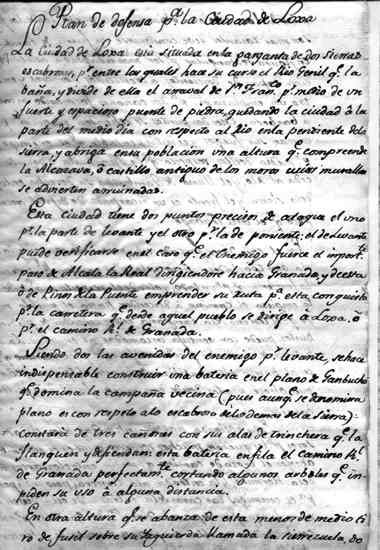 Plan de defensa p.ª la Ciudad de Loxa
La Ciudad de Loxa esta situada en la garganta de dos sierras
escabrosas p.r entre las quales hace su curso el Rio Genil q.e la
baña, y divide de ella el arraval de S.n Fran.co p.r medio de un
fuerte y espacioso puente de piedra, quedando la ciudad a la
parte del medio dia con respecto al Rio en la pendiente de la
sierra, y abriga en su poblacion una altura q.e comprende
la Alcazava, ó castillo antiguo de los moros cuias murallas
se advierten arruinadas.
Esta ciudad tiene dos puntos precisos de ataque el uno
p.r la parte de levante y el otro p.r la de poniente: el de levante
puede verificarse en el caso q.e el Enemigo fuerce el import.te
paso de Alcala la Real dirigiendose hacia Granada, y de esta
ó de Pinos la Puente emprender su ruta p.a esta conquista
p.r la carretera q.e desde aquel pueblo se dirige á Loxa, ó
p.r el camino R.l de Granada.
Siendo dos las avenidas del enemigo p.r levante, se hace
indispensable construir una bateria en el plano de
q.e domina la campaña vecina (pues aunq.e se denomina
plano es con respeto a lo escabroso de lo demas de la sierra):
constará de tres cañones con sus alas de trinchera q.e la
flanqueen y defiendan: esta bateria enfila el camino R.l
de Granada perfectam.te cortando algunos arboles q.e im-
piden su uso á alguna distancia.
En otra altura q.e se abanza de esta menor de medio ti-
ro de fusil sobre su izquierda llamada la torrezuela, do